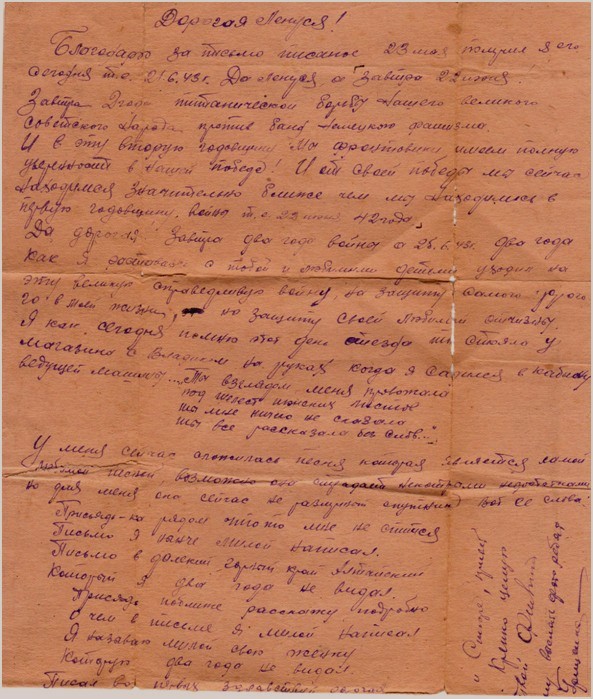 Дорогая Ленуся!
Благодарю за письмо писаное 23 мая получил я его
сегодня т.е. 21.6.43г. Да Ленуся а Завтра 22 июня!
Завтра 2 года титанической борьбы нашего великого
советского народа против банд немецкого фашизма.
И в эту вторую годовщину Мы фронтовики имеем полную
уверенность в нашей победе! И от своей победы мы сейчас
находимся значительно ближе чем мы находились в
первую годовщину войны т.е. 22 июня 42 года.
Да дорогая Завтра два года войны а 25.6.43г. два года
как я расстовался с тобой и любимыми детьми уходил на
эту великую справедливую войну, на защиту самого дорого
го в моей жизни, на защиту своей любимой отчизны.
Я как сегодня помню этот день отъезда ты стояла у
магазина с Владиком на руках когда я садился в кабину
ведущей машины. "Ты взглядом меня провожала
под шелест июньских листов
ты мне ничего не сказала
ты все рассказала без слов..."
У меня сейчас сложилась песня которая является самой
любимой песней, возможно она страдает некоторыми недостатками
но для меня она сейчас не разлучный спутник. Вот её слова:
Присядь-ка рядом что-то мне не спится
Письмо я нынче милой написал.
Письмо в далекий горный край Алтайский
Который я два года не видал.
Присядь поближе расскажу подробно
О чем в письме я милой написал
Я называю милой свою женку
Которую два года не видал
Писал
и
Крепко целую
твой